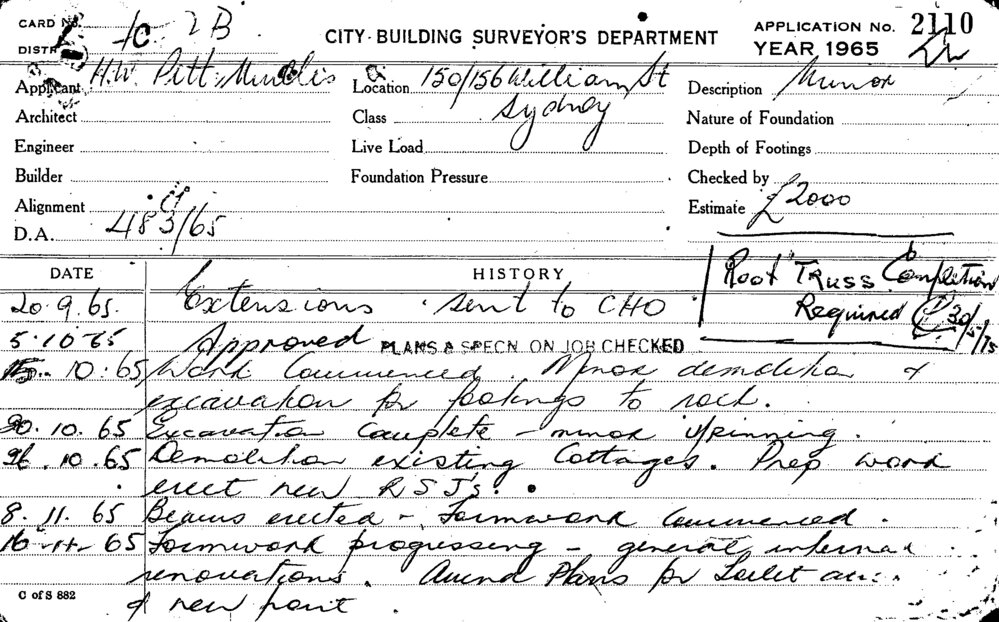 CARD No. 2B
CITY BUILDING SURVEYOR'S DEPARTMENT
APPLICATION No. 2110
DISTR
YEAR 1965
Applicant H.W. Pitt
Location 150/156 William St
Sydney
Description Minor
Architect
Class
Nature of Foundation
Engineer
Live Load
Depth of Footings
Builder
Foundation Pressure
Checked by
Alignment
Estimate £2000
D.A. 483/65
DATE
HISTORY
Roof Truss Completion
Required 30/5/75
20.9.65. Extensions sent to CHO
5.10.65 Approved PLANS & SPECN. ON JOB CHECKED
10.65 Work Commenced. Minor demolition &
excavation for footings to rock.
20.10.65 Excavation Complete - minor u/pinning.
26.10.65 Demolition existing Cottages. Prep work
erect new RSJ's.
8.11.65 Beams erected - Formwork Commenced.
16-11-65 Formwork progressing - general internal
renovations. Amend Plans for Toilet
& new front.
C of S 882